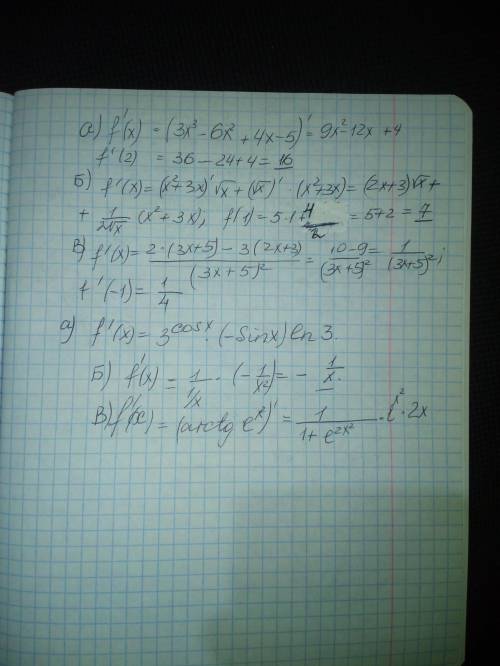 а) f'(x) = (3x³ - 6x² + 4x - 5)' = 9x² - 12x + 4
f'(2) = 36 - 24 + 4 = 16
Б) f'(x) = (x² + 3x)' √x + (√x)' · (x² + 3x) = (2x + 3)√x +
+ 1/(2√x) (x² + 3x); f'(1) = 5 · 1 + 4/2 = 5 + 2 = 7
В) f'(x) = (2 · (3x + 5) - 3(2x + 3))/(3x + 5)² = (10 - 9)/(3x + 5)² = 1/(3x + 5)²;
f'(-1) = 1/4
а) f'(x) = 3^cosx · (-sinx) ln 3.
Б) f'(x) = 1/(1/x) · (-1/x²) = - 1/x.
В) f'(x) = (arctg e^x²)' = 1/(1 + e^2x²) · e^x² · 2x